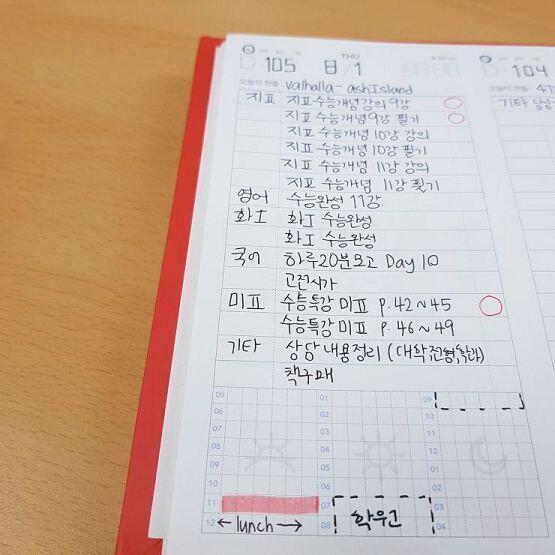 THU
D-105 8/1 D-104
오늘의 한줄 Valhalla - ash Island 오늘의 한줄
지표 지표 수능개념 강의 9강 기타
지표 수능개념 9강 필기
지표 수능개념 10강 강의
지표 수능개념 10강 필기
지표 수능개념 11강 강의
지표 수능개념 11강 필기
영어 수능완성 11강
화I 화I 수능완성
화I 수능완성
국어 하루20분모고 Day 10
고전시가
미표 수능특강 미표 P.42~45
수능특강 미표 P.46~49
기타 상담 내용정리 (대학,전형,학과)
책구매
05 01 09
06 02 10
07 03 11
08 04 12
09 05 01
10 06 02
11 07 03
12 lunch 08 학원 04